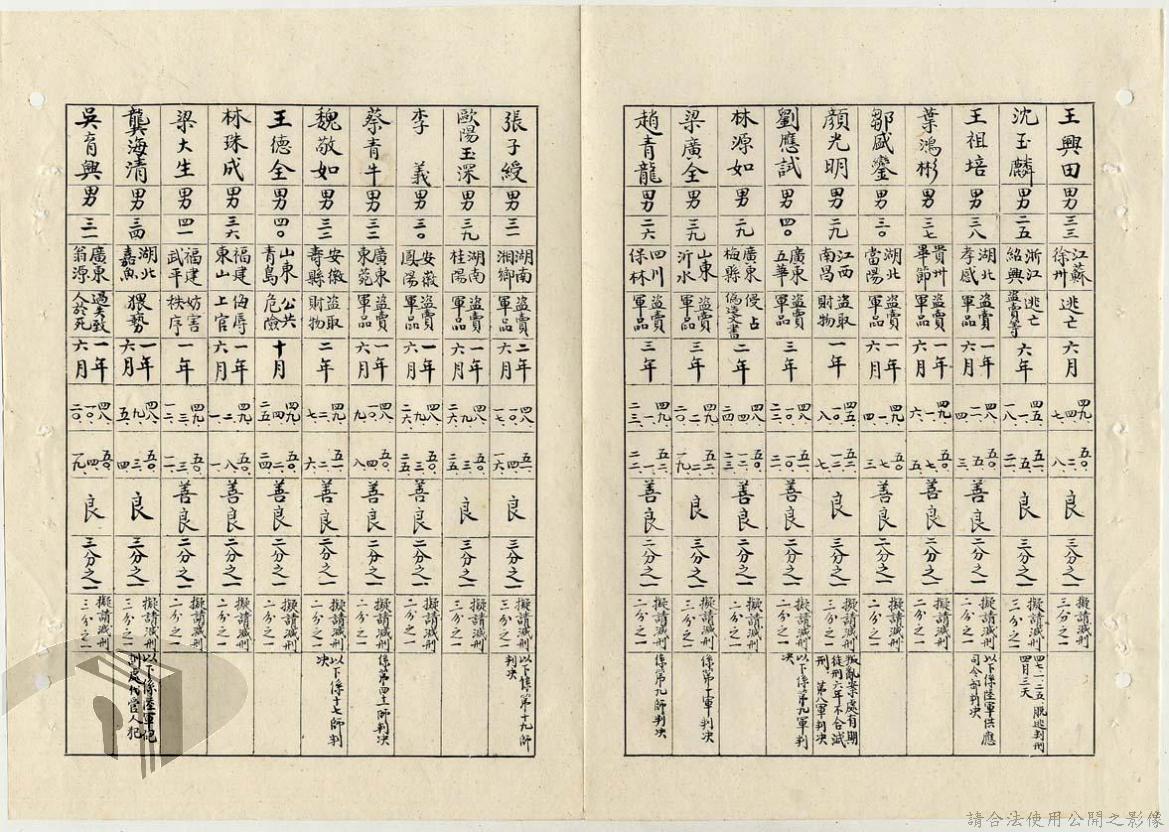 王興田 男 三三 江蘇徐州 逃亡 六月 四九.四.七. 五〇.三.八 良 三分之一 擬請減刑三分之一
沈玉麟 男 二五 浙江紹興 逃亡盜賣等 六年 四五.一.一八 五一.一.二一. 良 三分之一 擬請減刑三分之一 四七一二五脫逃判刑四月三天
王祖培 男 三八 湖北孝感 盜賣軍品 一年六月 四八.一一.四 五〇.五.三 善良 二分之一 擬請減刑二分之一 以下係陸軍供應司令部判決
葉鴻彬 男 三七 貴州畢節 盜賣軍品 一年六月 四九.一.六. 五〇.七.五 善良 二分之一 擬請減刑二分之一
鄒盛鑾 男 三〇 湖北當陽 盜賣軍品 一年六月 四九.一.四. 五〇.七.三 善良 二分之一 擬請減刑二分之一
顏光明 男 二九 江西南昌 盜取財物 一年 四五.一.八 五二.一.七 良 三分之一 擬請減刑三分之一 叛亂案處有期徒刑六年不合減刑.第八軍判決
劉應試 男 四〇 廣東五華 盜賣軍品 三年 四八.一〇.二一. 善良 二分之一 擬請減刑二分之一 以下係第九軍判決
林源如 男 二九 廣東梅縣 侵占偽造文書 二年 善良 二分之一 擬請減刑二分之一
梁廣全 男 三九 山東沂水 盜賣軍品 三年 四九.二.二〇 五二.二.一九. 良 三分之一 擬請減刑三分之一 係第十軍判決
趙青龍 男 二六 四川保林 盜賣軍品 三年 四九.一.二三. 五二.一.二二. 善良 二分之一 擬請減刑二分之一 係第九師判決
張子綬 男 三一 湖南湘鄉 盜賣軍品 二年六月 四八.一〇.一七. 五一.四.一六. 良 三分之一 擬請減刑三分之一 以下係第十九師判決
歐陽玉深 男 三九 湖南桂陽 盜賣軍品 一年六月 四八.九.二六. 五〇.三.二五. 良 三分之一 擬請減刑三分之一
李義 男 三〇 安徽鳳陽 盜賣軍品 一年六月 四八.九.二六. 五〇.三.二五. 善良 二分之一 擬請減刑二分之一
蔡青牛 男 三二 廣東東莞 盜賣軍品 一年六月 四八.一〇.九 五〇.四.八 善良 二分之一 擬請減刑二分之一 係第四十一師判決
魏敬如 男 三三 安徽壽縣 盜取財物 二年 四九.二.七. 五一.二.六 善良 二分之一 擬請減刑二分之一 以下係十七師判決
王德全 男 四〇 山東青島 公共危險 十月 四九.四.二五 五〇.二.二四 善良 二分之一 擬請減刑二分之一
林珠成 男 三六 福建東山 侮辱上官 一年六月 四九.二.一. 五〇.八.一. 善良 二分之一 擬請減刑二分之一
梁大生 男 四一 福建武平 妨害秩序 一年 四九.三.一二. 五〇.三.一一. 善良 二分之一 擬請減刑二分之一
龔海清 男 三四 湖北嘉魚 猥褻 一年六月 四八.九.五. 五〇.三.四 良 三分之一 擬請減刑三分之一 以下係陸軍
吳育興 男 三一 廣東翁源 過失致人於死 一年六月 四八.一〇.二〇. 五〇.四.一九. 良 三分之一 擬請減刑三分之一
請合法使用公開之影像